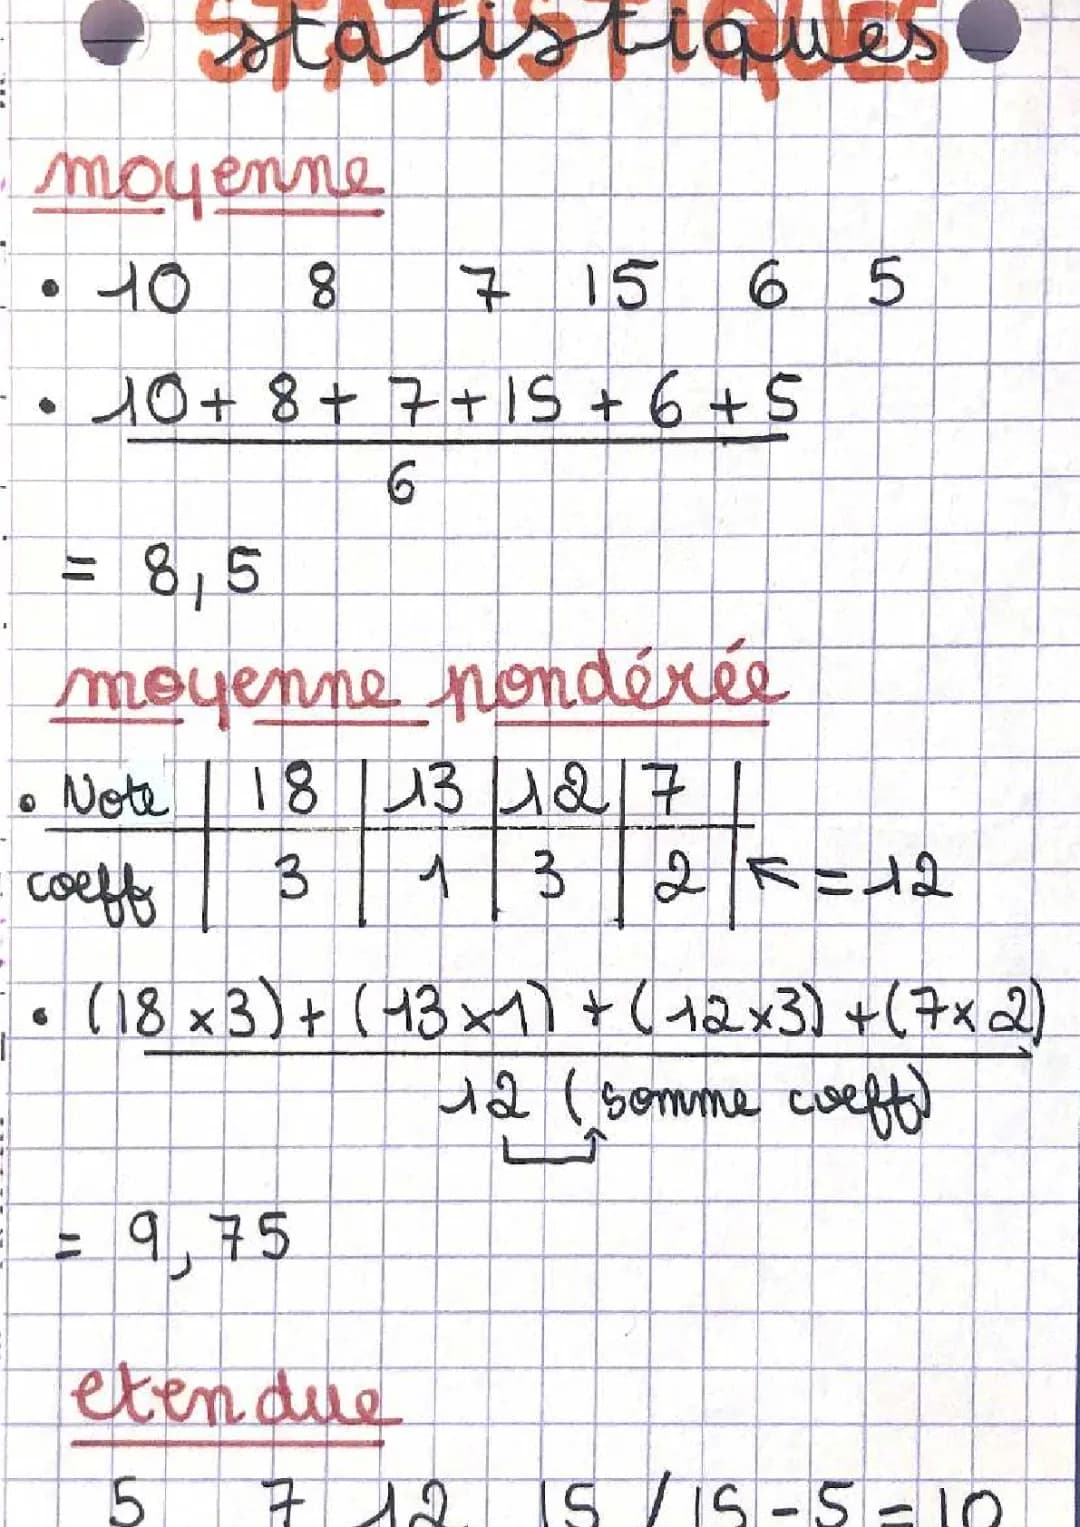 statistiques
moyenne
• 10 8 7 15 6 5
• 10 + 8 + 7 + 15 + 6 + 5
6
= 8,5
moyenne pondérée
• Note | 18 | 13 | 12 | 7 |
coeff | 3 | 1 | 3 | 2 | ← = 12
• (18 × 3) + (13 × 1) + (12 × 3) + (7 × 2)
12 (somme coeff)
= 9,75
etendue
5 7 12 15 / 15 - 5 = 10